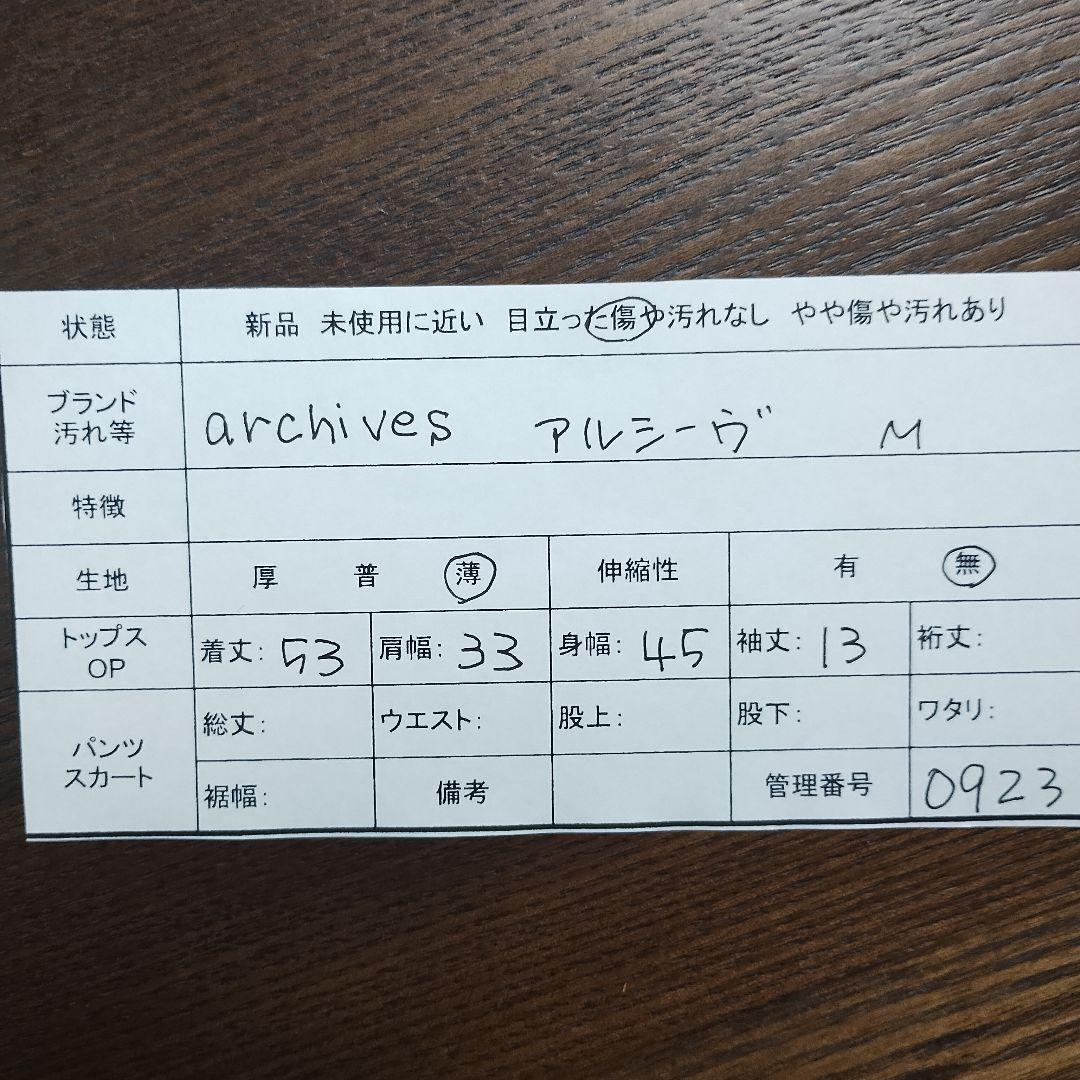 状態 新品 未使用に近い 目立った傷や汚れなし やや傷や汚れあり
ブランド
汚れ等
archives アルシーヴ M
特徴
生地 厚 普 薄 伸縮性 有 無
トップス
OP
着丈: 53 肩幅: 33 身幅: 45 袖丈: 13 裄丈:
パンツ
スカート
総丈: ウエスト: 股上: 股下: ワタリ:
裾幅: 備考 管理番号 0923